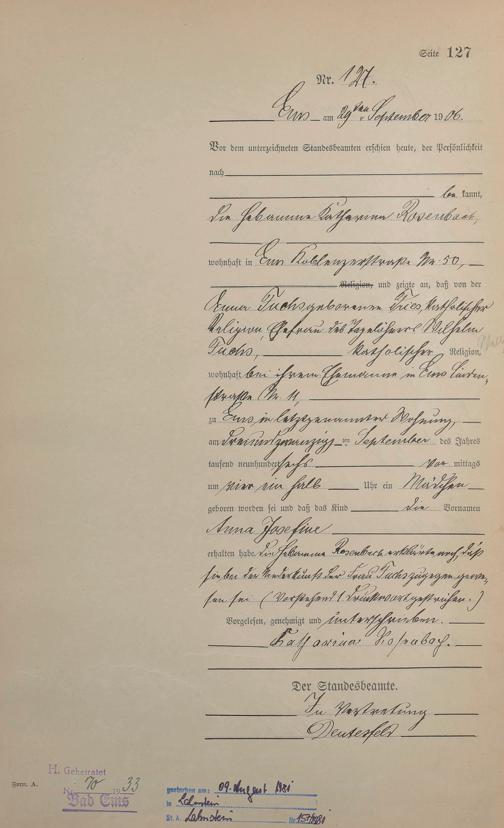 Seite 127
Nr. 127.
Ems am 29ten September 1906.
Vor dem unterzeichneten Standesbeamten erschien heute, der Persönlichkeit
nach
be kannt,
die Hebamme Katharina Rosenbach,
wohnhaft in Ems Koblenzerstraße Nr. 50,
Religion, und zeigte an, daß von der
Anna Fuchs geborenen Fries, katholischer
Religion, Ehefrau des Wilhelm
Fuchs, katholischer Religion,
wohnhaft bei ihrem Ehemanne in Ems Linden-
straße Nr. 11,
zu Ems in letztgenannter Wohnung,
am dreiundzwanzigsten September des Jahres
tausend neunhundert sechs Vor mittags
um vier ein halb Uhr ein Mädchen
geboren worden sei und daß das Kind die Vornamen
Anna Josefine
erhalten habe. Die Hebamme Rosenbach erklärte noch, daß
sie bei der Niederkunft der Frau Fuchs zugegen gewe-
sen sei (Vorstehend 1 Druckwort gestrichen.)
Vorgelesen, genehmigt und unterschrieben.
Katharina Rosenbach.
Der Standesbeamte.
In Vertretung
H. Geheiratet
Nr. 70 1933
Bad Ems
Form. A.
gestorben am: 09. August 1981
in Lahnstein
St. A. Lahnstein Nr.